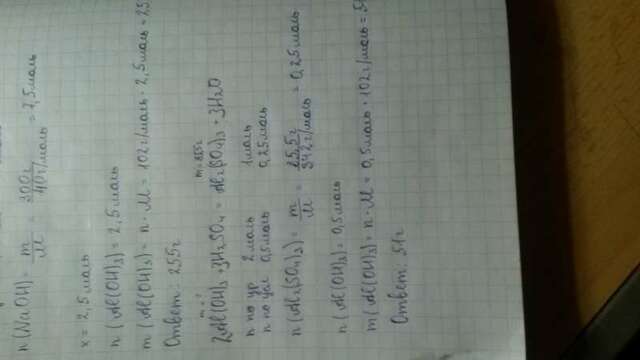 n(NaOH) = m/M = 300г/40г/моль = 7,5моль
x = 2,5моль
n(Al(OH)₃) = 2,5моль
m(Al(OH)₃) = n·M = 102г/моль·2,5моль = 25
Ответ: 255г
m=?
2Al(OH)₃+3H₂SO₄ = Al₂(SO₄)₃+3H₂O
n по ур 2моль 1моль
n по усл 0,5моль 0,25моль
n(Al₂(SO₄)₃) = m/M = 85,5г/342г/моль = 0,25моль
n(Al(OH)₃) = 0,5моль
m(Al(OH)₃) = n·M = 0,5моль·102г/моль = 5
Ответ: 51г